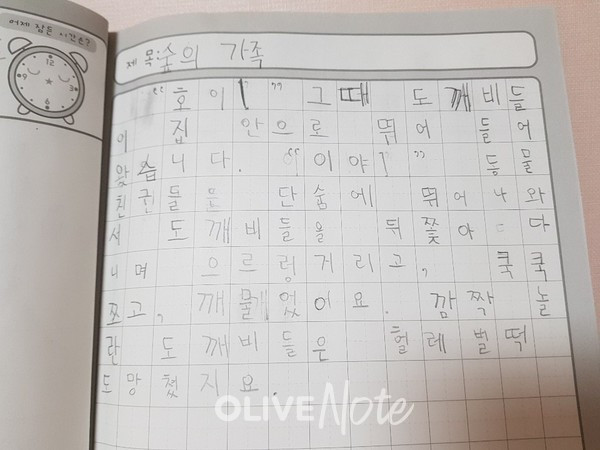 어제 잠든 시간은?
제목: 숲의 가족
"호이!" 그때 도깨비들
이 집 안으로 뛰어들어
왔습니다. "이야!" 동물
친구들은 단숨에 뛰어나와
서 도깨비들을 뒤쫓아다
니며 으르렁거리고, 쿡쿡
쪼고, 깨물었어요. 깜짝 놀
란 도깨비들은 헐레벌떡
도망쳤지요.
OLIVE Note